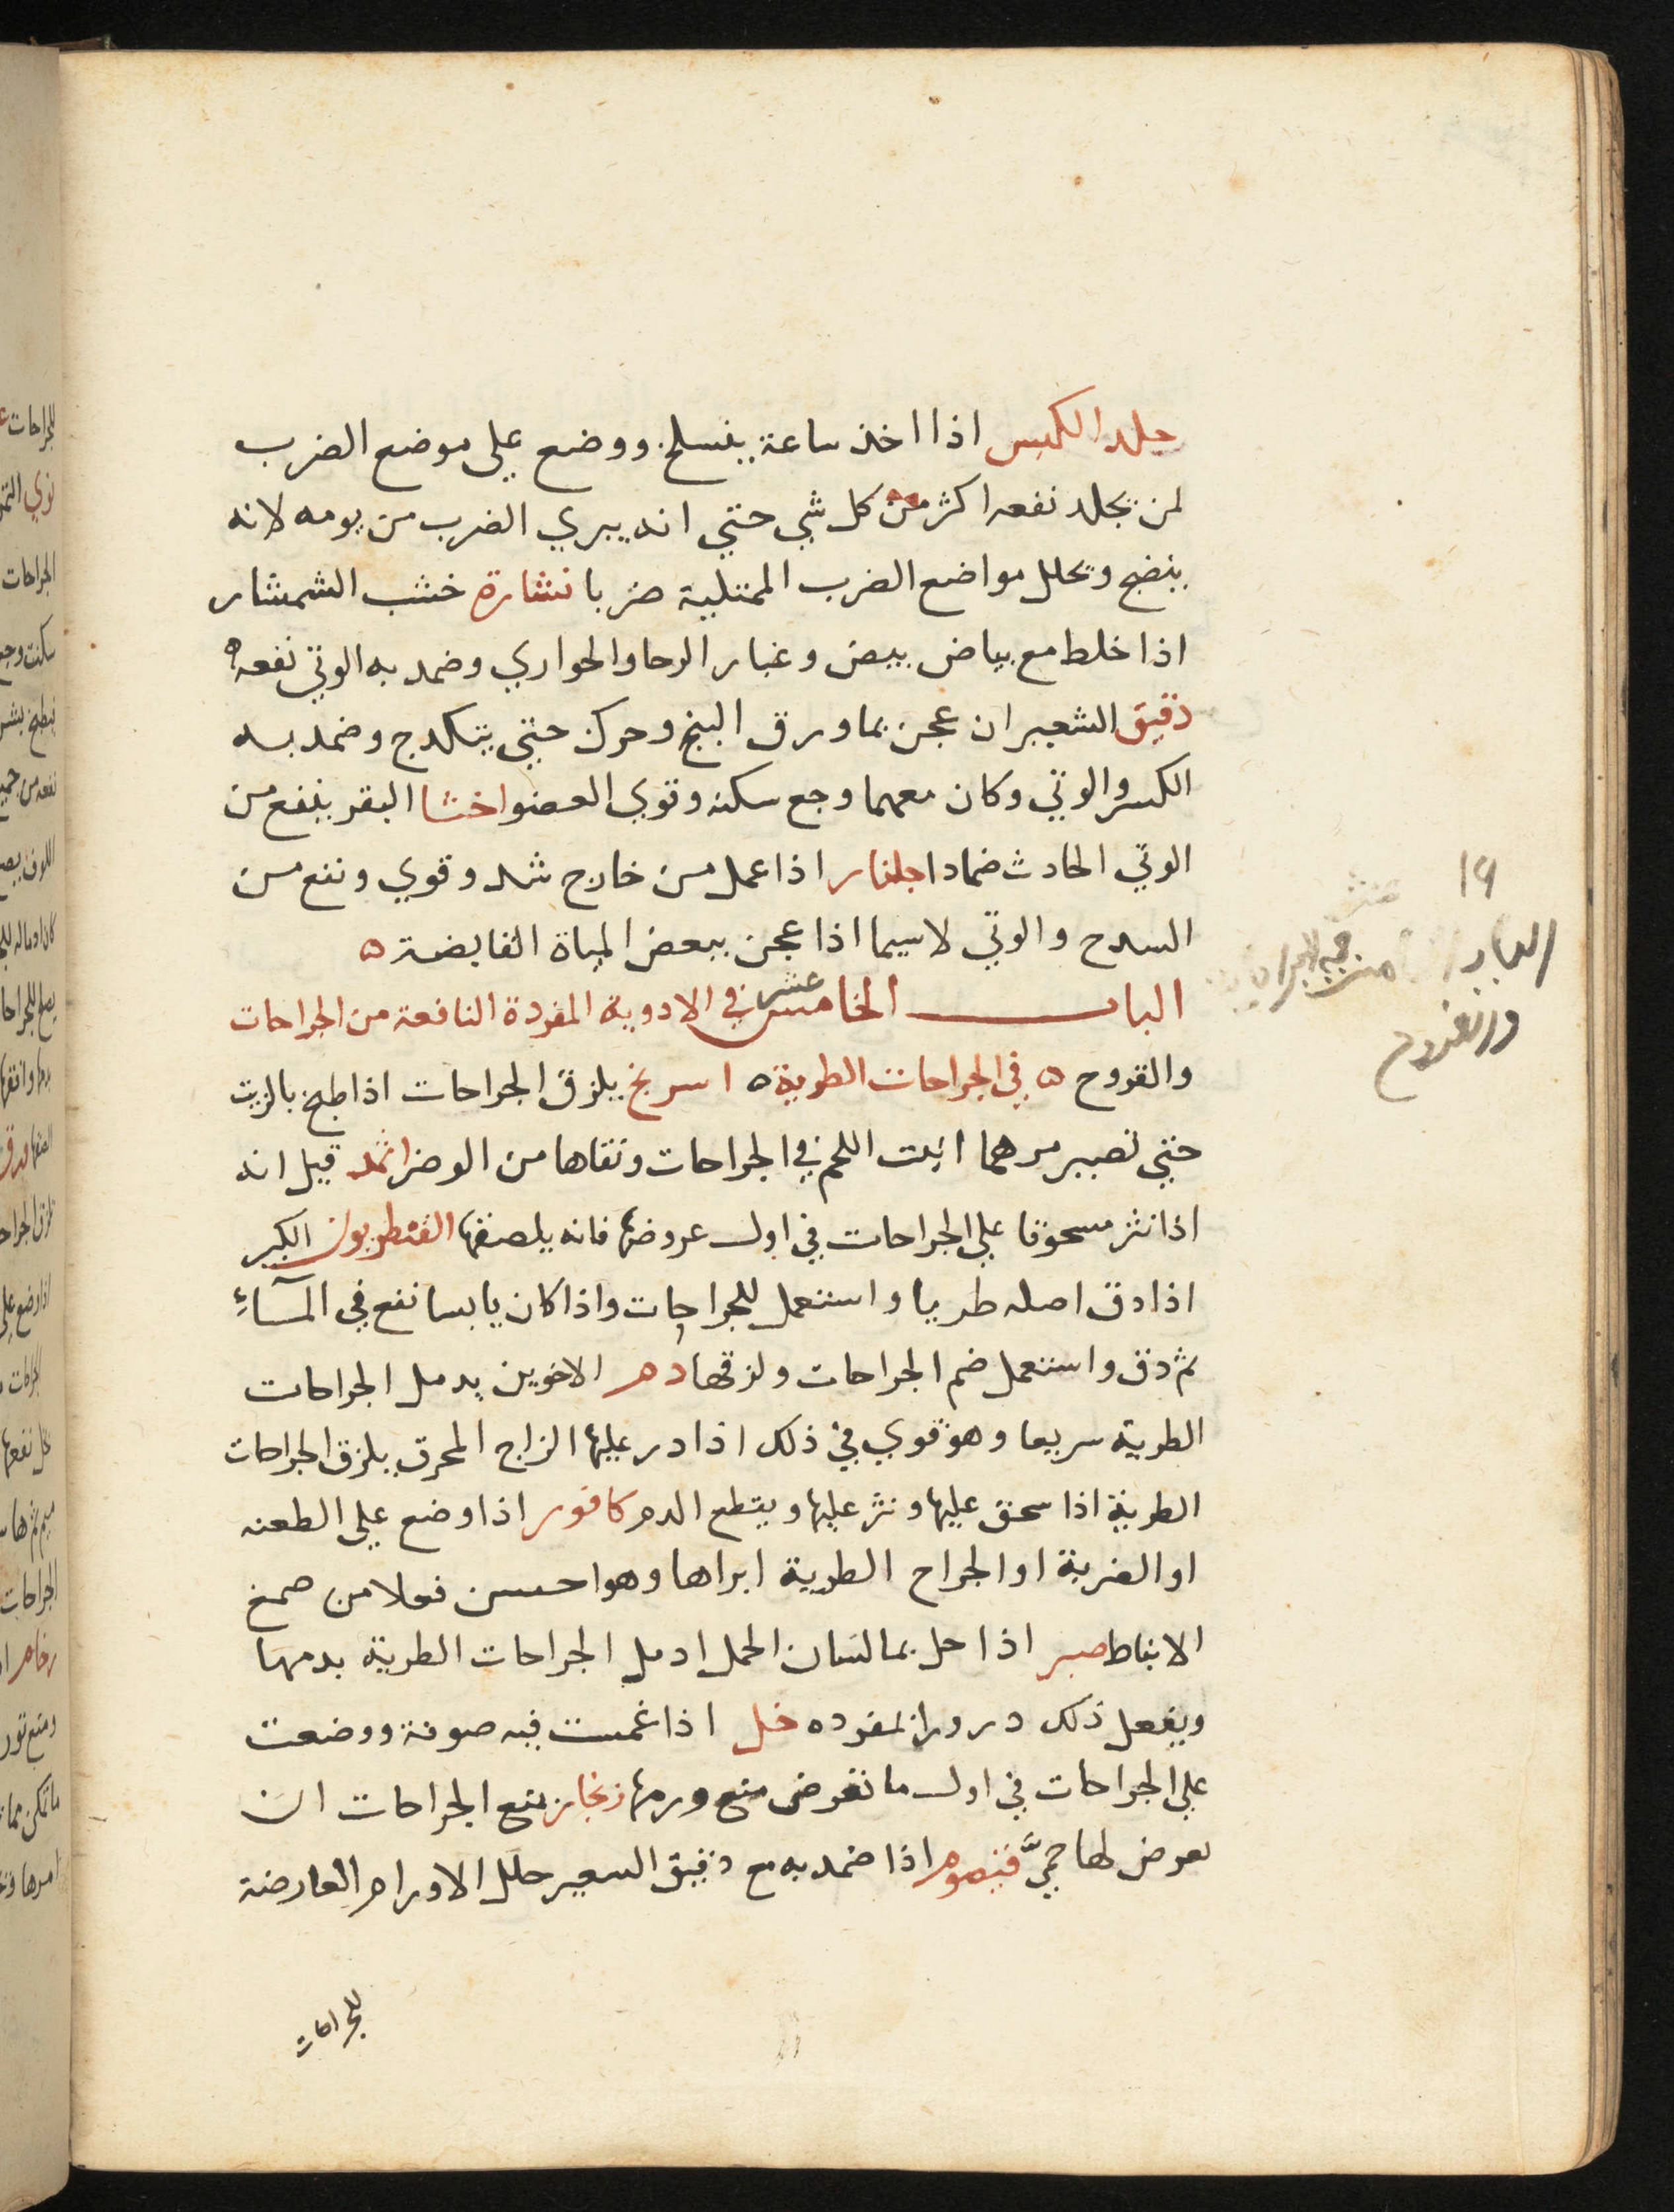 جلد الكبس اذا اخذ ساعة ينسلخ ووضع علي موضع الضرب
لمن يجلد نفعه اكثر من كل شي حتي انه يبري الضرب من يومه لانه
ينضج ويحلل مواضع الضرب الممتلية ضربا نشارة خشب الشمشار
اذا خلط مع بياض بيض وغبار الرحا والحواري وضمد به الوثي نفعه ه
دقيق الشعير ان عجن بما ورق البنج وحرك حتي يتكدج وضمد به
الكسر والوثي وكان معهما وجع سكنه وقوي العضو اخثا البقر ينفع من
الوثي الحادث ضمادا جلنار اذا عمل من خارج شد وقوي ونفع من
السدح والوثي لاسيما اذا عجن ببعض المياة القابضة ه
الباب الخامس عشر في الادوية المفردة النافعة من الجراحات
والقروح ه في الجراحات الطرية ه اسرنج يلزق الجراحات اذا طبخ بالزيت
حتي تصير مرهما انبت اللحم في الجراحات ونقاها من الوضر اثمد قيل انه
اذا نثر مسحوقا علي الجراحات في اول عروضها فانه يلصقها القنطريون الكبير
اذا دق اصله طريا واستعمل للجراحات واذا كان يابسا نفع في المآء
ثم دق واستعمل ضم الجراحات ولزقها دم الاخوين يدمل الجراحات
الطرية سريعا وهو قوي في ذلك اذا در عليها الزاج المحرق يلزق الجراحات
الطرية اذا سحق عليها ونثر عليها ويقطع الدم كافور اذا وضع علي الطعنه
او الضربة او الجراح الطرية ابراها وهو احسن فعلا من صمغ
الانباط صبر اذا حل بما لسان الحمل ادمل الجراحات الطرية بدمها
ويفعل ذلك درورا بمفرده خل اذا غمست فيه صوفة ووضعت
علي الجراحات في اول ما تعرض منع ورمها زنجار يمنع الجراحات ان
يعرض لها حمي قيصوم اذا ضمد به مع دقيق السعير حلل الاورام العارضة
للجراحات
١٩
الباب